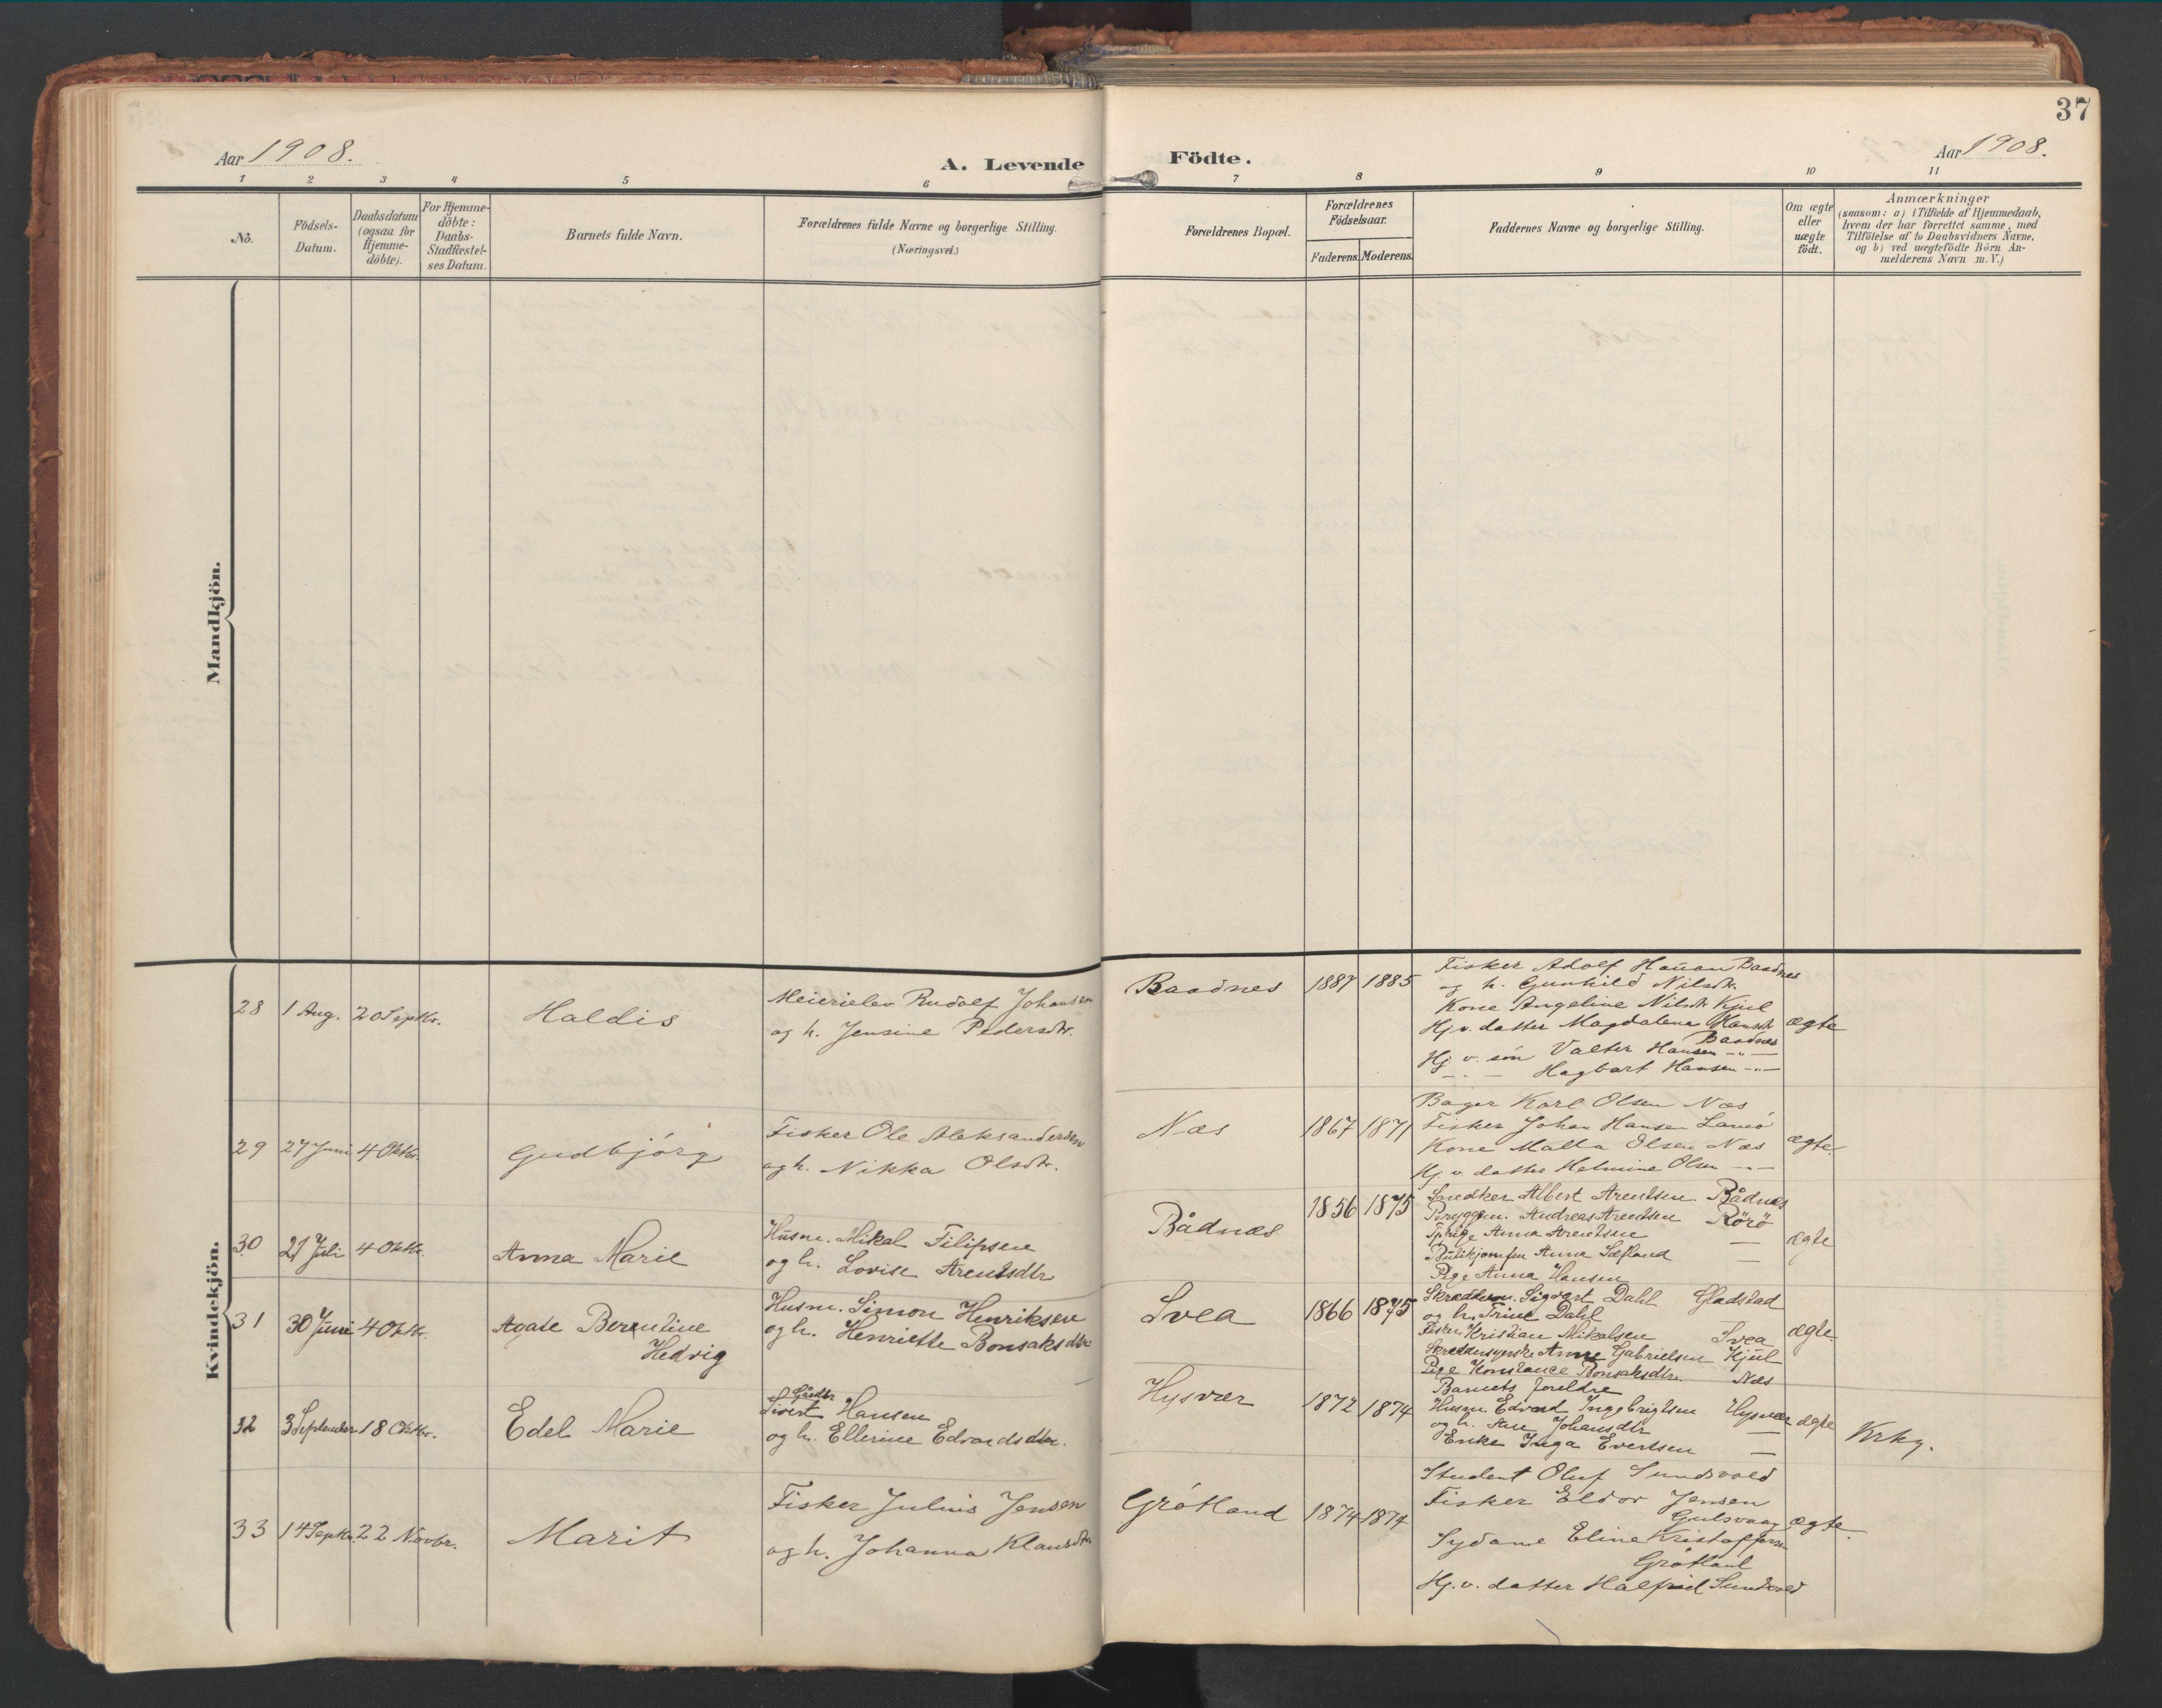 37
Aar 1908.
A. Levende Födte.
Aar 1908.
1 2 3 4 5 6 7 8 9 10 11
No.
Födsels-
Datum.
Daabsdatum
(ogsaa for
Hjemme-
döbte).
For Hjemme-
döbte:
Daabs-
Stadfæstel-
ses Datum.
Barnets fulde Navn.
Forældrenes fulde Navne og borgerlige Stilling.
(Næringsvei.)
Forældrenes Bopæl.
Forældrenes
Födselsaar.
Faderens. Moderens.
Faddernes Navne og borgerlige Stilling.
Om ægte
eller
uægte
födt.
Anmærkninger
(saasom: a) i Tilfælde af Hjemmedaab,
hvem der har forrettet samme, med
Tilföielse af to Daabsvidners Navne,
og b) ved uægtefödte Börn An-
melderens Navn m. V.)
Mandkjön.
Kvindekjön.
28 1 Aug. 20 Septbr.
Haldis
Meierielev Rudolf Johansen
og h. Jensine Pedersdtr.
Baadnes 1887 1885
Fisker Adolf Hansen Baadnes
og h. Gunhild Nilsdtr.
Kone Angeline Nilsdtr Kjul
Hj.v. datter Magdalena Hansdtr
Baadnes
Hj. v. sön Valter Hansen -"-
- " - Hagbart Hansen -"-
ægte
29 27 Juni 4 Oktbr.
Gudbjörg
Fisker Ole Aleksandersen
og h. Nikka Olsdtr.
Næs 1867 1871
Bager Karl Olsen Næs
Fisker Johan Hansen Lamö
Kone Malla Olsen Næs
Hj. v. datter Helmine Olsen -"-
ægte.
30 27 Juli 4 Oktbr.
Anna Marie
Husm. Mikal Filipsen
og h. Lovise Arentsdtr
Bådnæs 1856 1875
Snedker Albert Arentsen Bådnæs
Bryggem. Andreas Arentsen Rörö
Anna Arentsen —
Butikjomfru Anna Sæfland —
Pige Anna Hansen
ægte
31 30 Juni 4 Oktbr.
Agate Berentine
Hedvig
Husm. Simon Henriksen
og h. Henriette Bonsaksdtr
Svea 1866 1875
Skreddem. Sigvart Dahl Gladstad
og h. Trine Dahl
Fisker Kristian Mikalsen Svea
Skreddersyerske Anne Gabrielsen Kjul
Pige Konstance Bonsaksdtr. Næs
ægte.
32 3 September 18 Oktbr.
Edel Marie
Gårdbr
Sivert Hansen
og h. Ellerine Edvardsdtr.
Hysvær 1872 1874
Barnets foreldre
Husm. Edvard Ingebrigtsen Hysvær
og h. Ane Johansdtr —
Enke Inga Evertsen —
ægte
Krkg.
33 14 Septbr. 22 Novbr.
Marit
Fisker Julius Jensen
og h. Johanna Klausdtr.
Grötland 1874 1874
Student Oluf Sundsvold
Fisker Eldor Jensen
Gulsvaag
Sydame Eline Kristoffersen
Grötland
Hj. v. datter Halfrid Sundsvold
ægte.